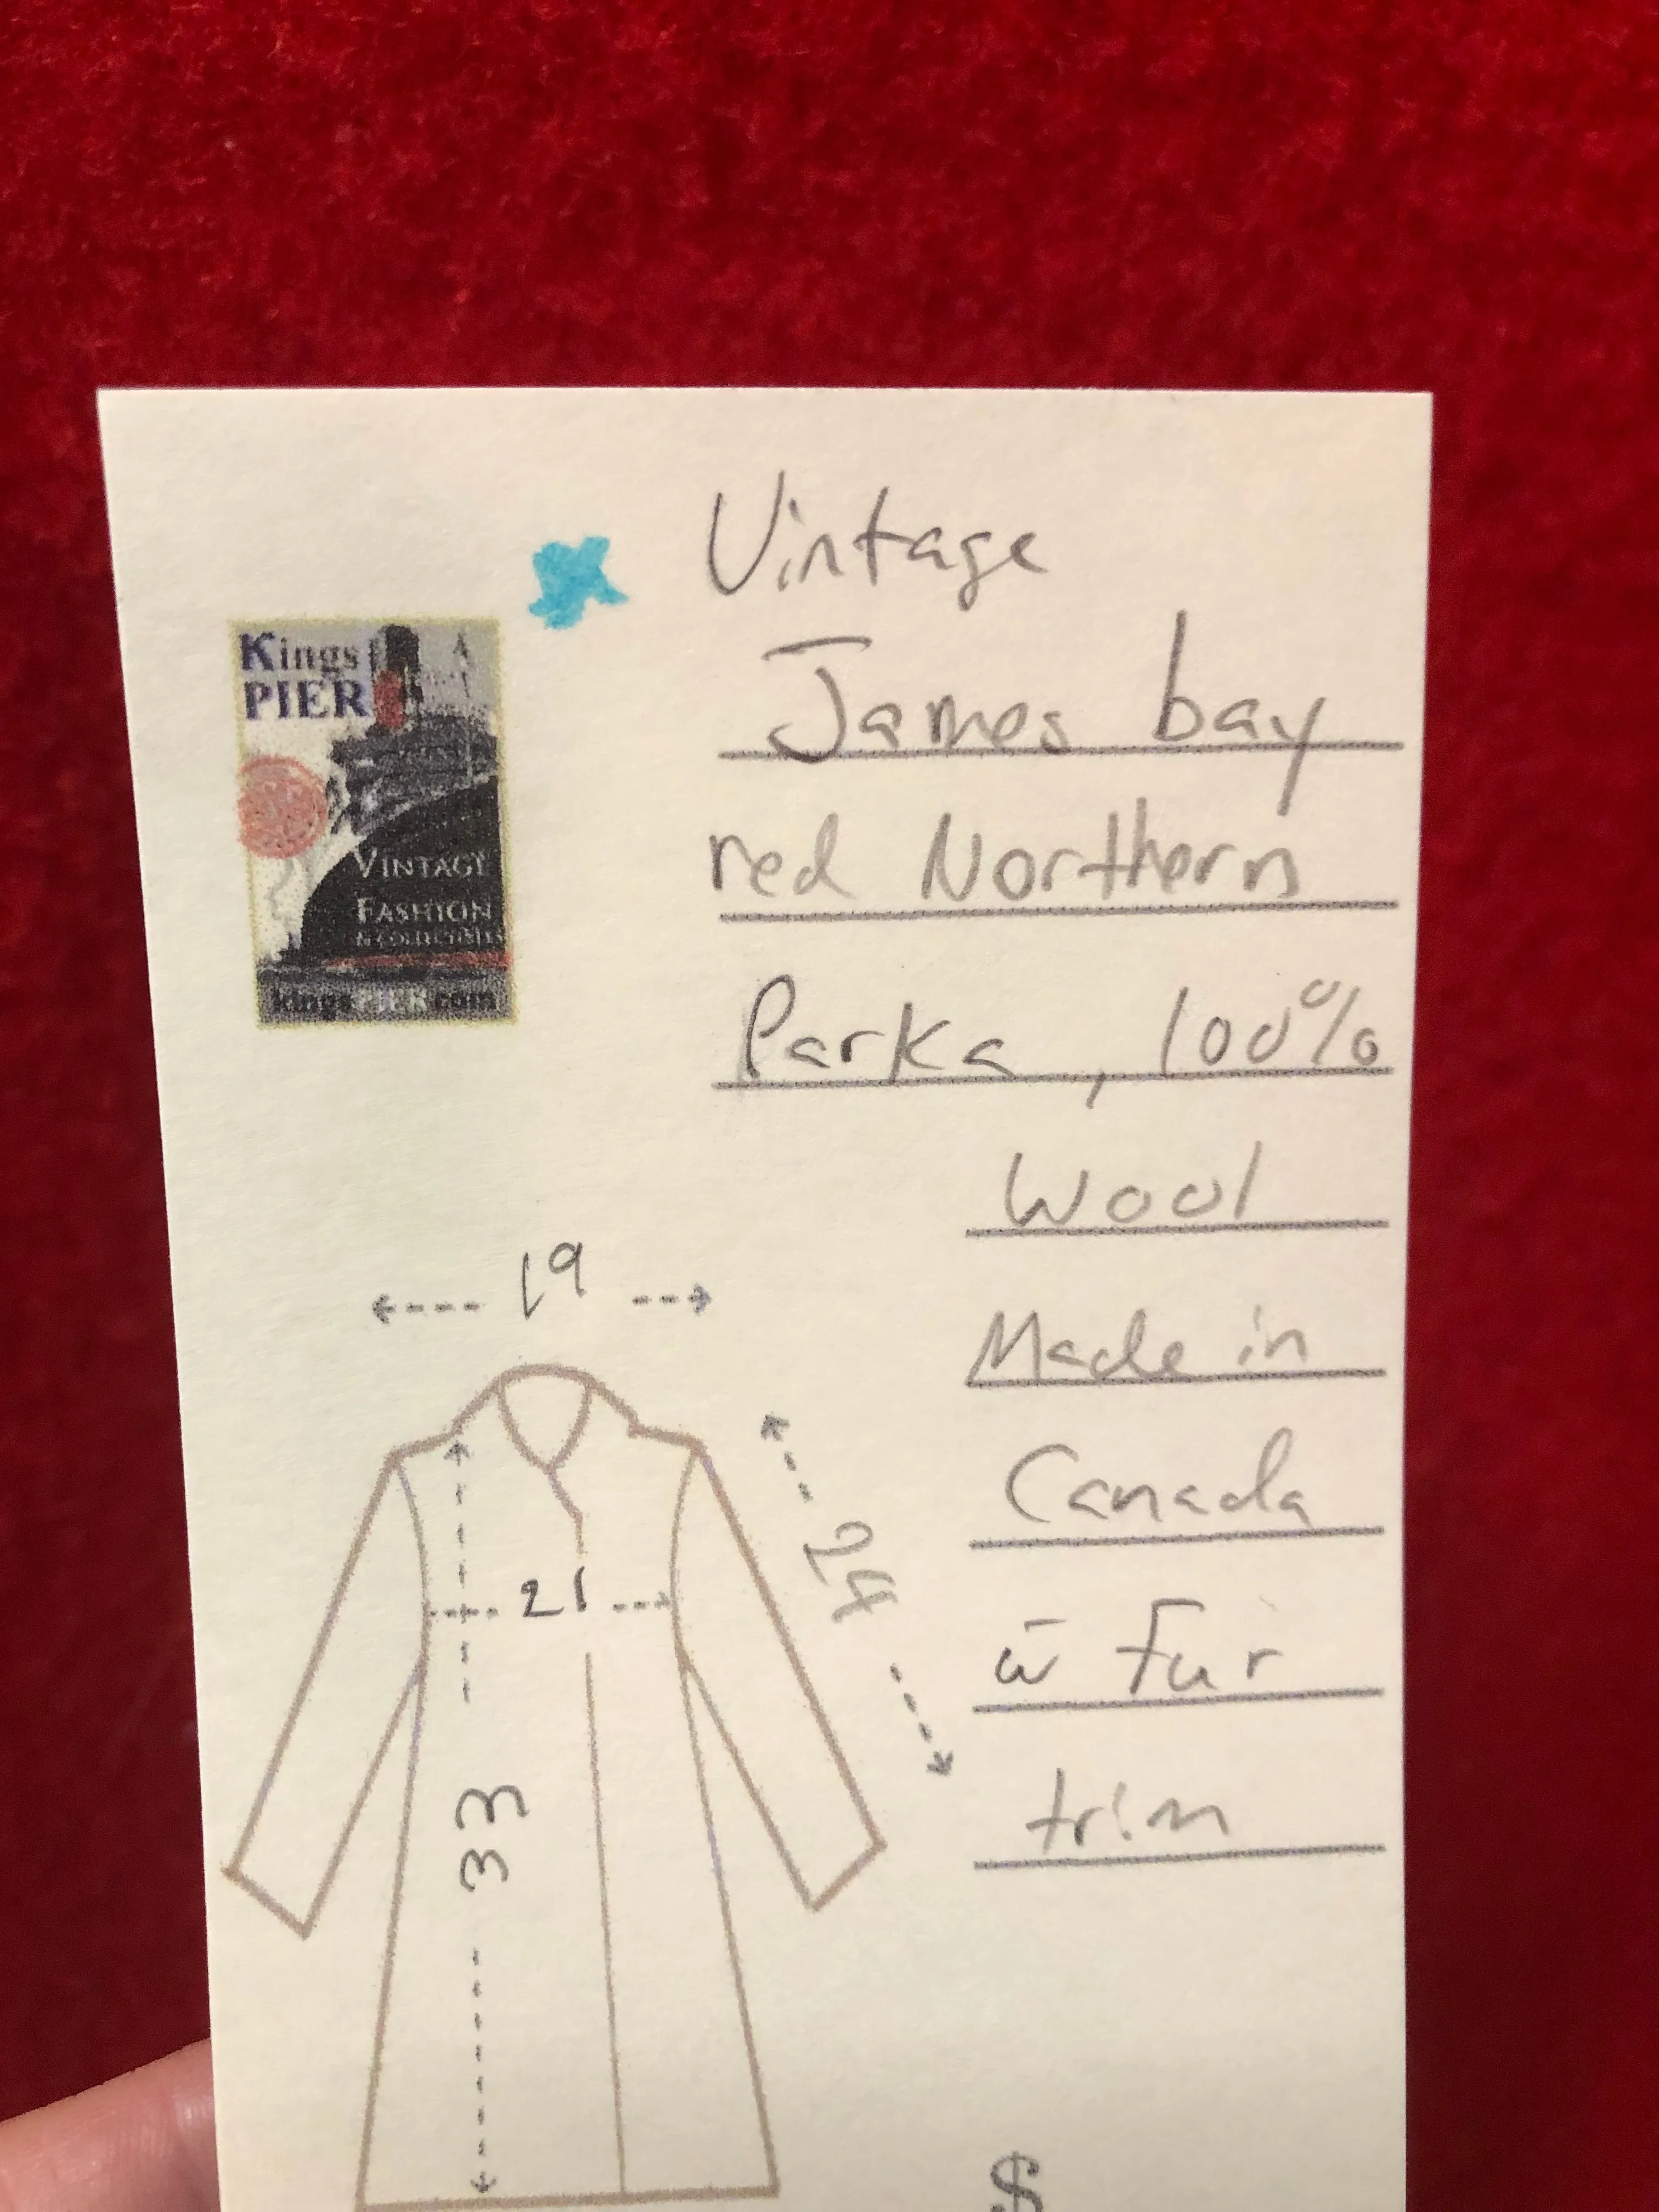 Vintage
James bay
red Northern
Parka, 100%
Wool
Made in
Canada
w̄ Fur
trim
Kings
PIER
VINTAGE
FASHION
& COLLECTIBLES
kingsPIER.com
19
24
21
33
$